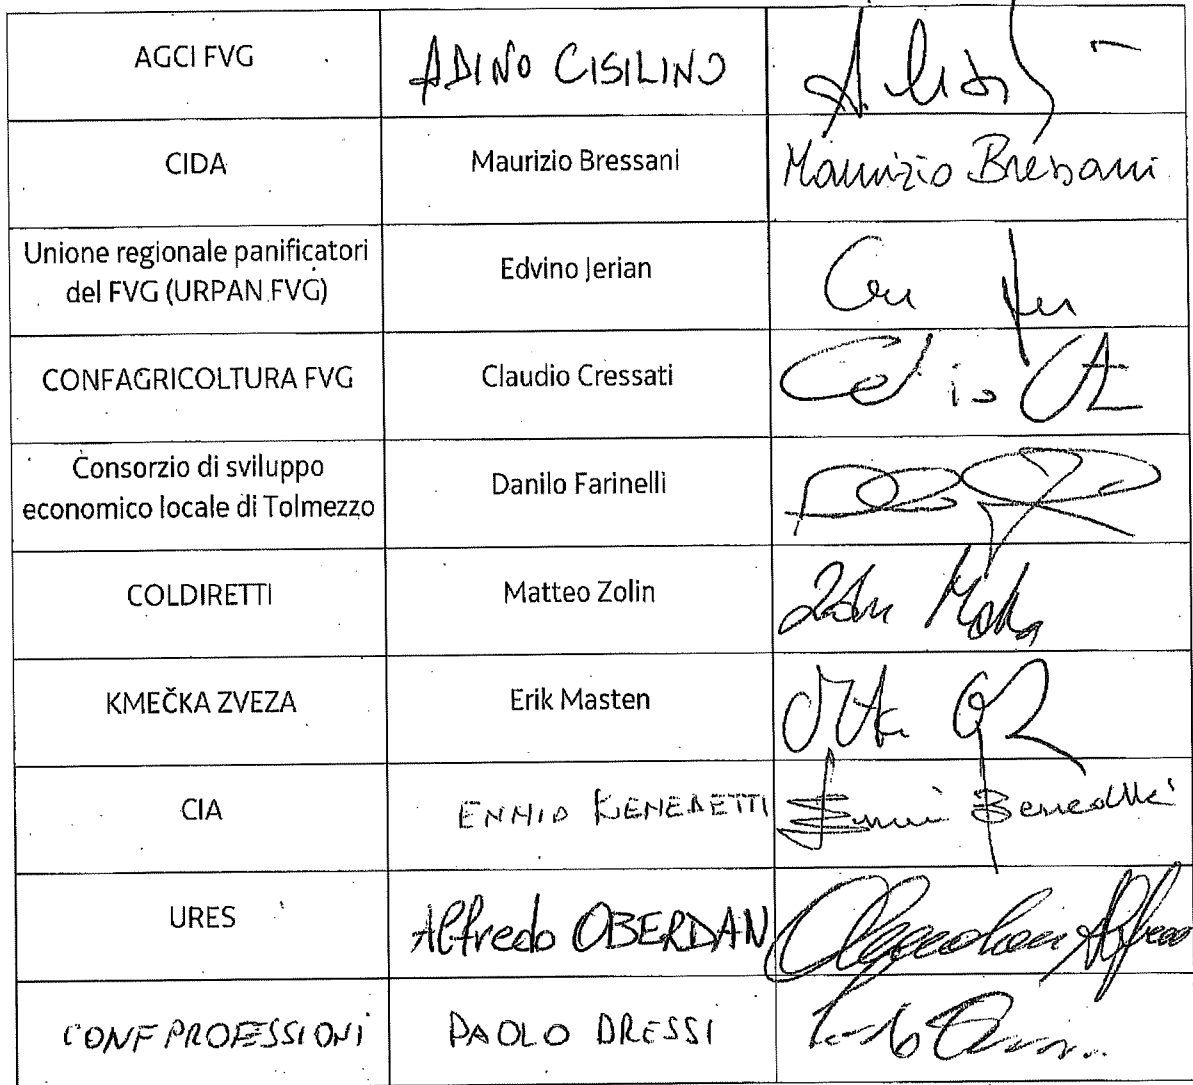 AGCI FVG
ADINO CISILINO
CIDA
Maurizio Bressani
Maurizio Bressani
Unione regionale panificatori
del FVG (URPAN FVG)
Edvino Jerian
CONFAGRICOLTURA FVG
Claudio Cressati
Consorzio di sviluppo
economico locale di Tolmezzo
Danilo Farinelli
COLDIRETTI
Matteo Zolin
KMEČKA ZVEZA
Erik Masten
CIA
ENNIO BENEDETTI
URES
Alfredo OBERDAN
CONFPROFESSIONI
PAOLO DRESSI